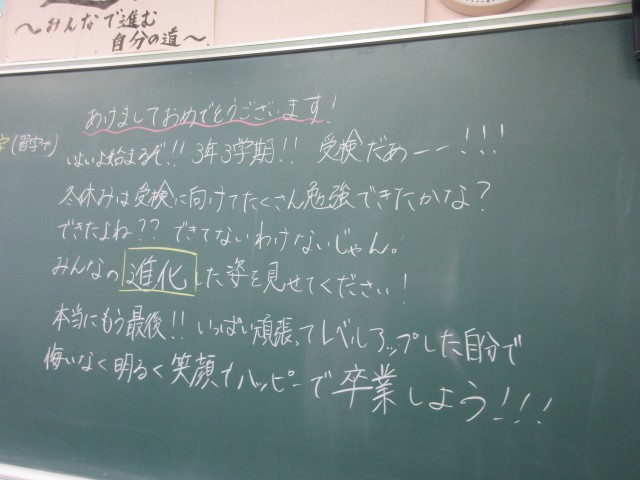 ～みんなで進む
自分の道～
あけましておめでとうございます!
字(習字で)
いよいよ始まるぞ!! 3年3学期!! 受検だぁーー!!!
冬休みは受検に向けてたくさん勉強できたかな?
できたよね?? できてないわけないじゃん。
みんなの進化した姿を見せてください!
本当にもう最後!! いっぱい頑張ってレベルアップした自分で
悔いなく明るく笑顔でハッピーで卒業しよう!!!